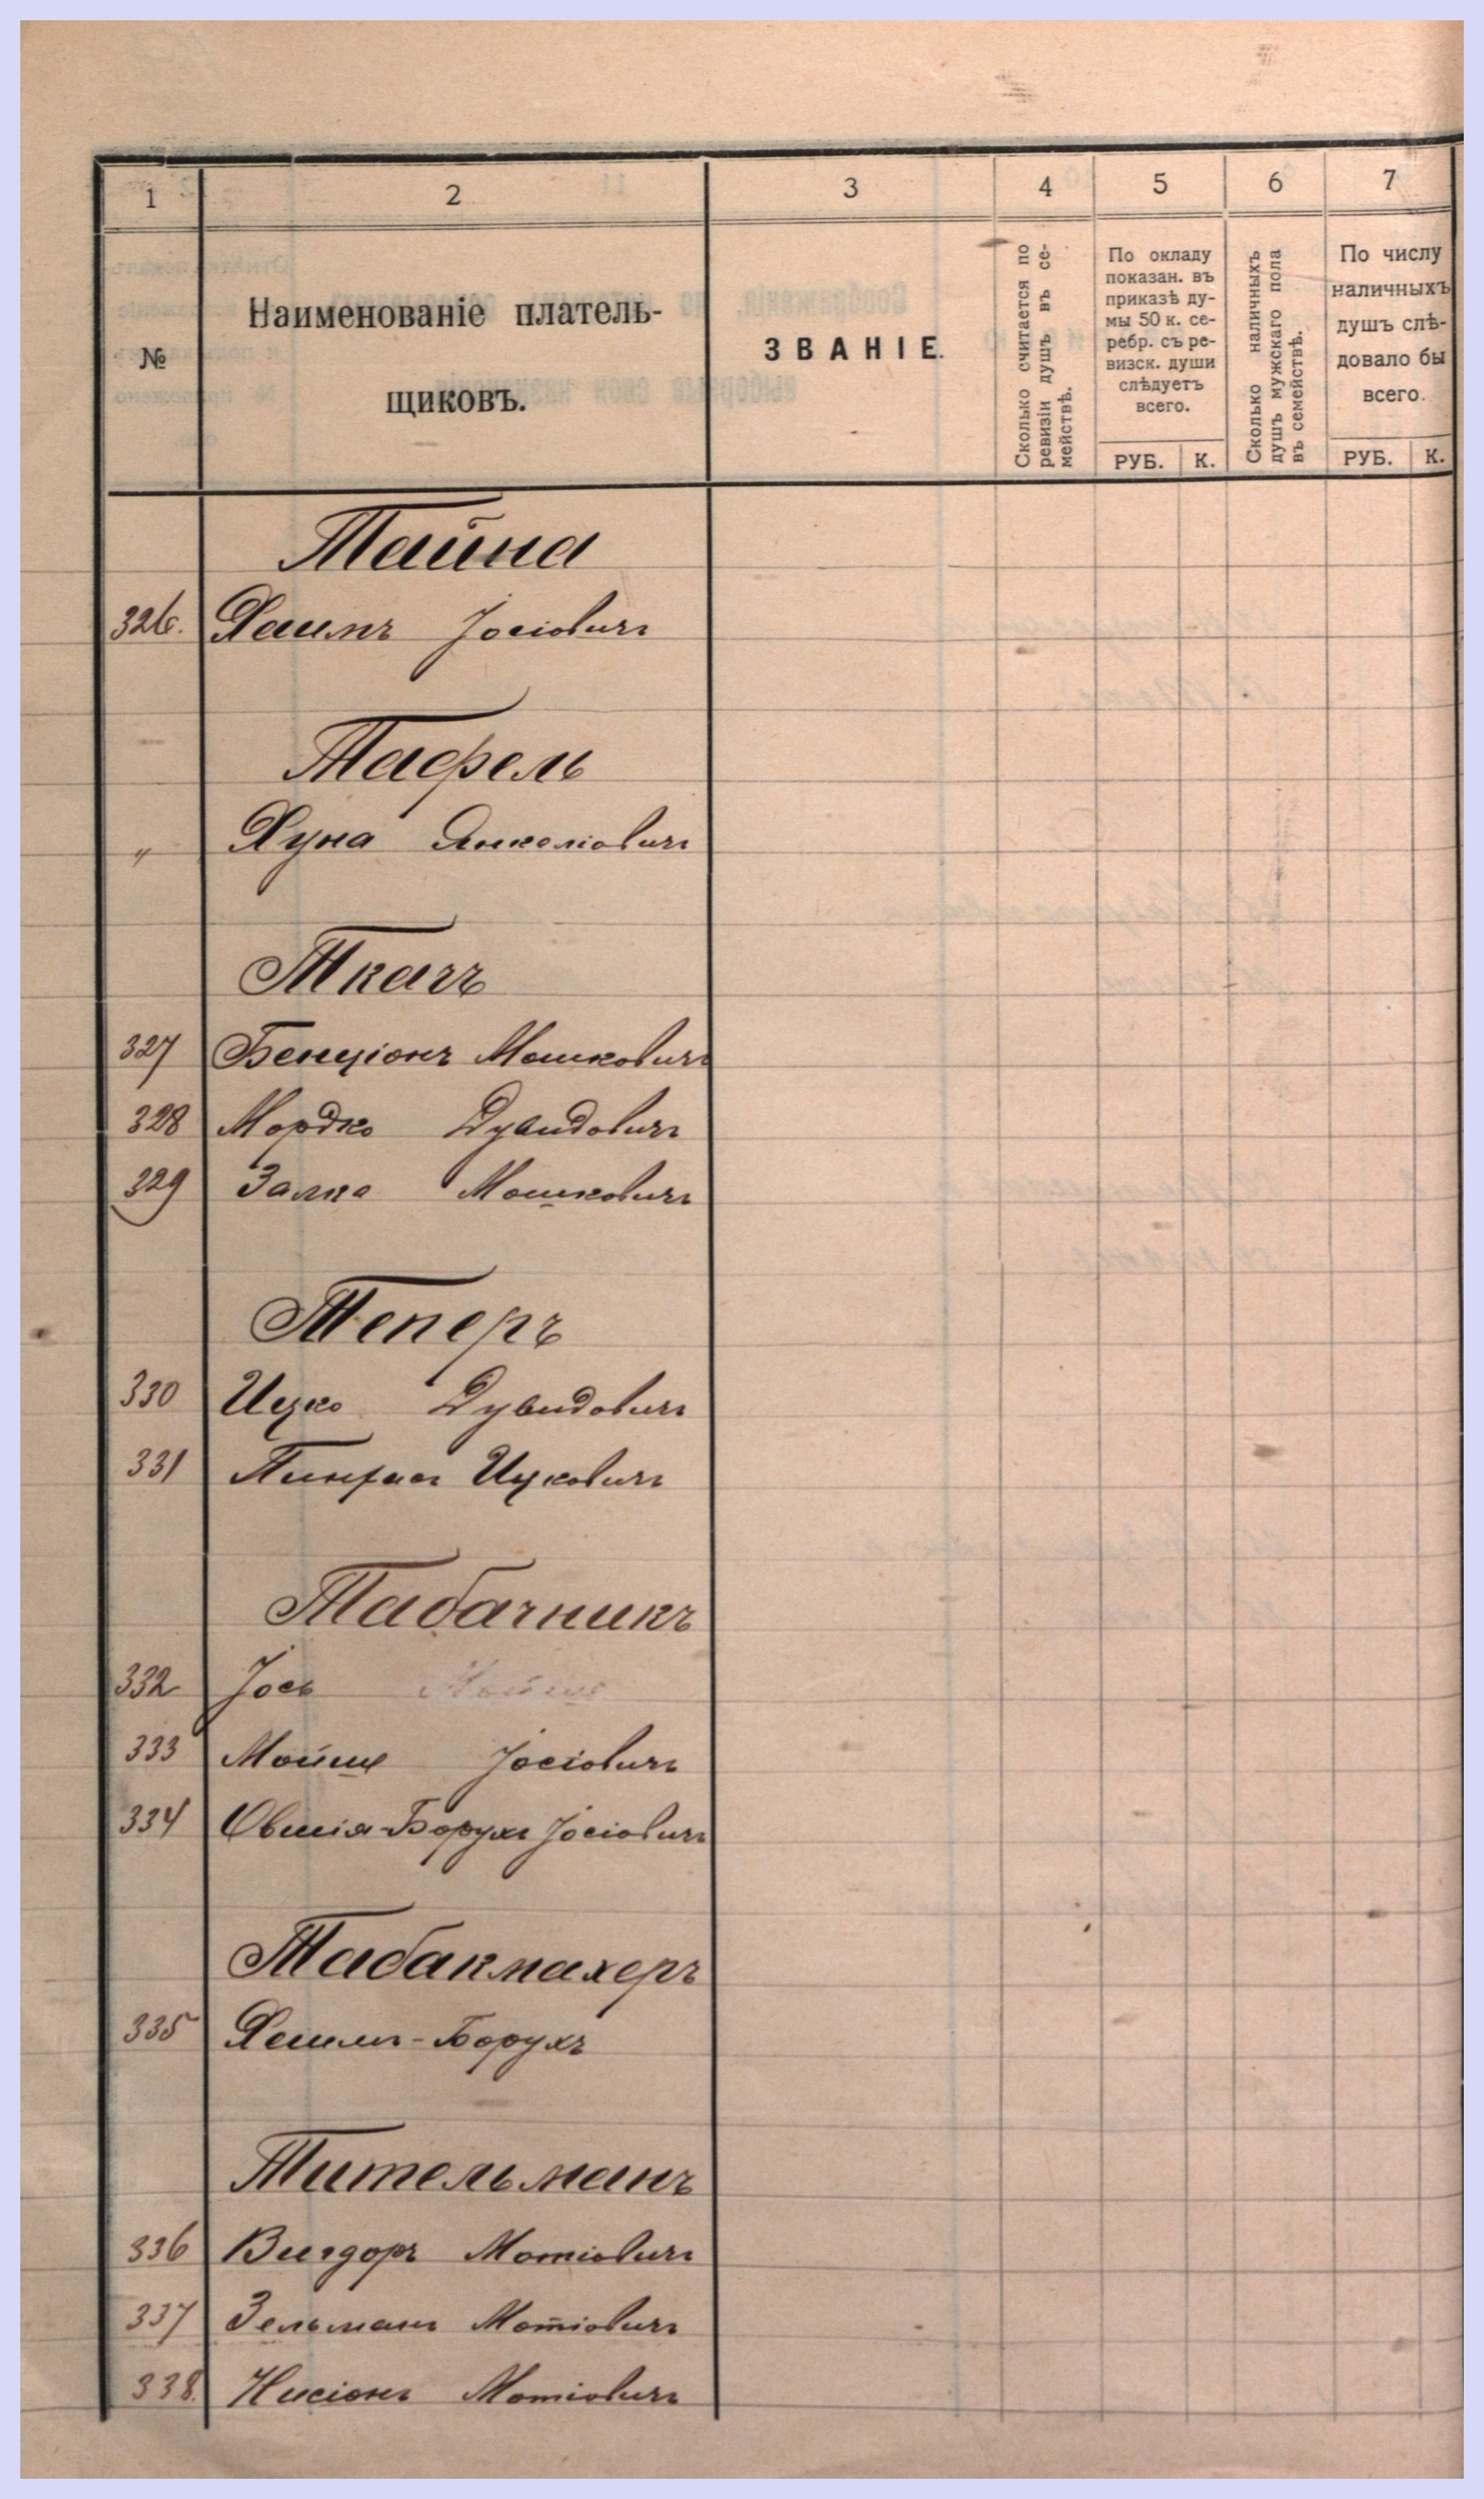 1 2 3 4 5 6 7
№
Наименованіе платель-
щиковъ.
ЗВАНІЕ.
Сколько считается по
ревизіи душъ въ се-
мействѣ.
По окладу
показан. въ
приказѣ ду-
мы 50 к. се-
ребр. съ ре-
визск. души
слѣдуетъ
всего.
РУБ. К.
Сколько наличныхъ
душъ мужскаго пола
въ семействѣ.
По числу
наличныхъ
душъ слѣ-
довало бы
всего.
РУБ. К.
Тайна
326. Хаимъ Јосіовичъ
Тафель
" Хуна Янкеліовичъ
Ткачъ
327 Бенціонъ Мошковичъ
328 Мордко Дувидовичъ
329 Залка Мошковичъ
Теперъ
330 Ицко Дувидовичъ
331 Пинхасъ Ицковичъ
Табачникъ
332 Јось
333 Мойше Јосіовичъ
334 Овшія-Борухъ Јосіовичъ
Табакмахеръ
335 Хаимъ-Борухъ
Тительманъ
336 Вигдоръ Мотіовичъ
337 Зельманъ Мотіовичъ
338. Нисіонъ Мотіовичъ